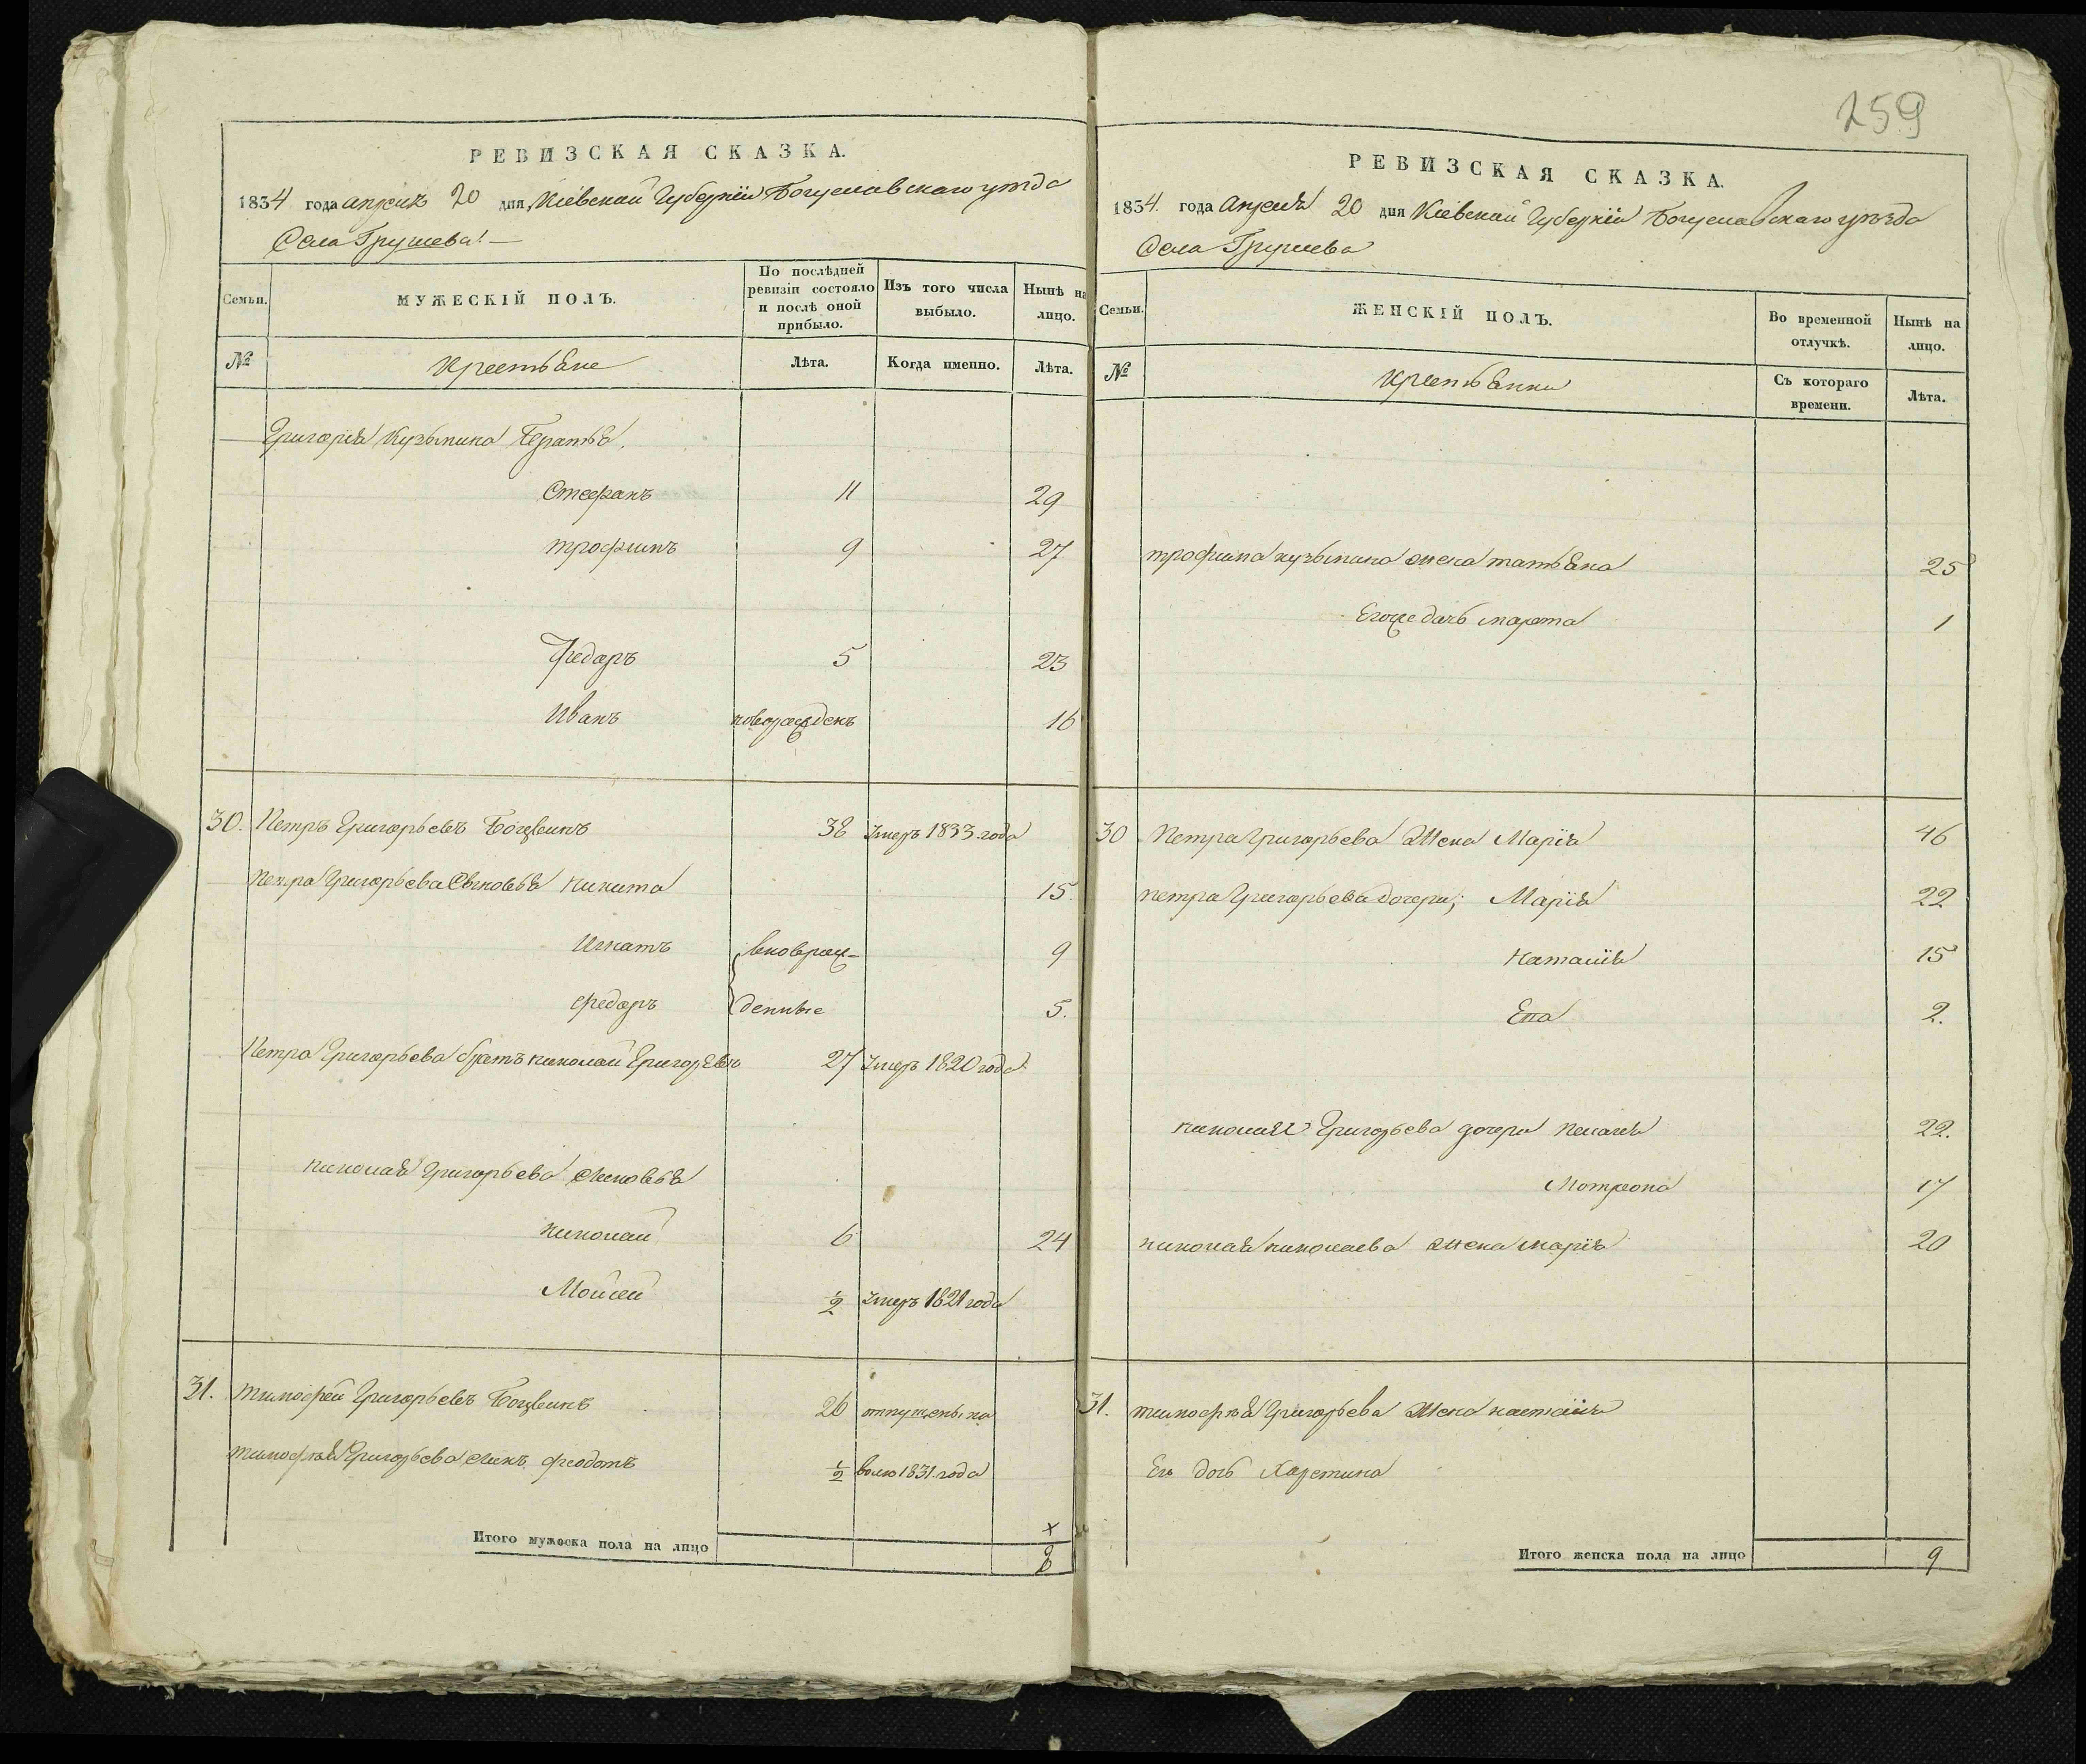 259
РЕВИЗСКАЯ СКАЗКА.
1834 года апреля 20 дня Кіевской Губерніи Богуславскаго уезда
Села Грушева
Семьи. МУЖЕСКІЙ ПОЛЪ. По послѣдней ревизіи состояло и послѣ оной прибыло. Изъ того числа выбыло. Нынѣ на лицо.
№ Крестьяне Лѣта. Когда именно. Лѣта.
Григорія Кузьмина Братья
Стефанъ 11 29
трофимъ 9 27
Федоръ 5 23
Иванъ новорожденъ 16
30. Петръ Григорьевъ 38 умеръ 1833 года
Петра Григорьева Сыновья Никита 15
Игнатъ вноврож- 9
федоръ денные 5.
Петра Григорьева братъ николай Григорьевъ 27 умеръ 1820 года
николая Григорьева Сыновья
николай 6 24
Мойсей ½ умеръ 1821 года
31. тимофей Григорьевъ 26 отпущены на
тимофея Григорьева сынъ феодотъ ½ волю 1831 года
Итого мужеска пола на лицо 8
РЕВИЗСКАЯ СКАЗКА.
1834. года Апреля 20 дня Кіевской Губерніи Богуславскаго уезда
Села Грушева
Семьи. ЖЕНСКІЙ ПОЛЪ. Во временной отлучкѣ. Нынѣ на лицо.
№ Крестьянки Съ котораго времени. Лѣта.
трофима кузьмина жена татьяна 25
Егоже дочь марта 1
30 Петра Григорьева Жена Марія 46
петра Григорьева дочери; Марія 22
Наталія 15
Ева 2.
николая Григорьева дочери 22.
Мотрона 17
николая николаева жена марія 20
31. тимофея Григорьева Жена настасія
Ея дочь Харетина
Итого женска пола на лицо 9